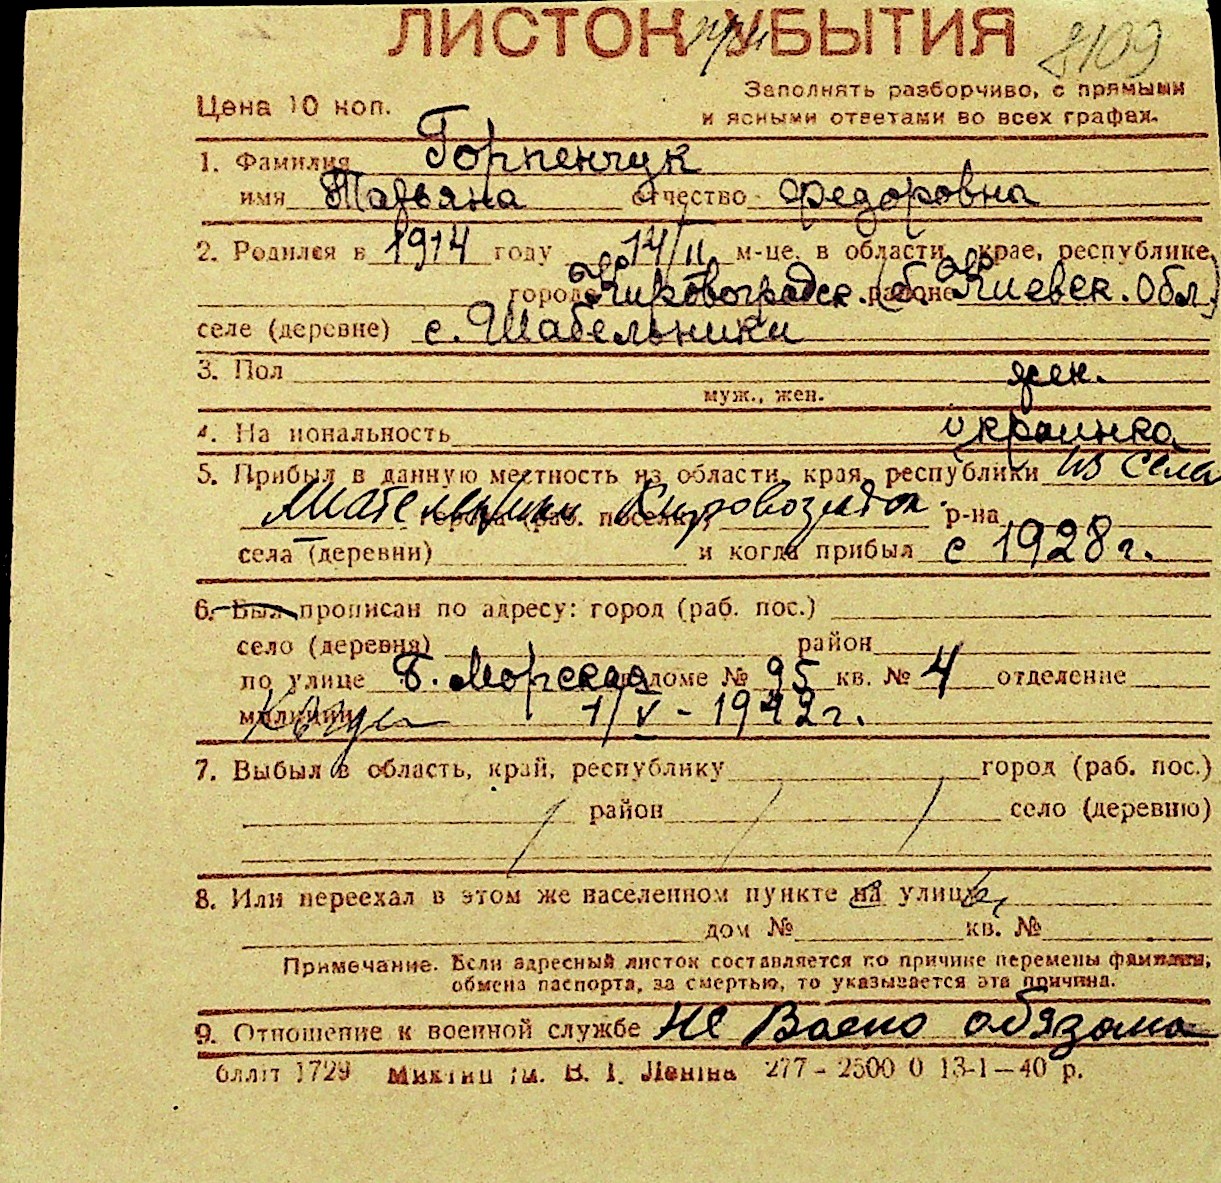 ЛИСТОК при УБЫТИЯ 8109
Цена 10 коп.
Заполнять разборчиво, с прямыми
и ясными ответами во всех графах.
1. Фамилия Горпенчук
имя Татьяна отчество Федоровна
2. Родился в 1914 году 14/II м-це, в области, крае, республике
городе Кировоградск. районе (б. Киевск. Обл.)
селе (деревне) с. Шабельники
3. Пол жен.
муж., жен.
4. На иональность украинка
5. Прибыл в данную местность из области, края, республики из села
города (раб. поселка) р-на
села (деревни) и когда прибыл с 1928 г.
6. Был прописан по адресу: город (раб. пос.)
село (деревня) район
по улице Б. Морская в доме № 95 кв. № 4 отделение
милиции 1/V - 1942 г.
7. Выбыл в область, край, республику город (раб. пос.)
район село (деревню)
8. Или переехал в этом же населенном пункте на улицу
дом № кв. №
Примечание. Если адресный листок составляется по причине перемены фамилии,
обмена паспорта, за смертью, то указывается эта причина.
9. Отношение к военной службе не Воено обязана
1729 им. В. І. Леніна 277 - 2500 0 13-1—40 р.